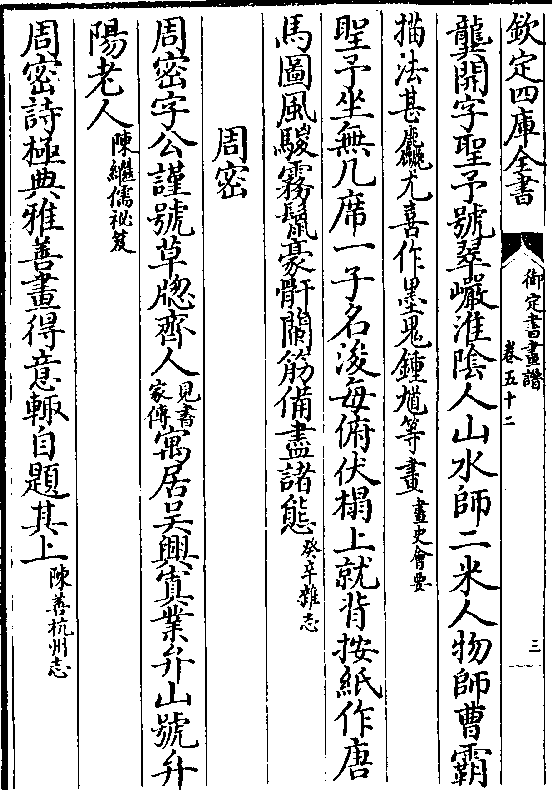 欽定四庫全書
御定書畫譜
卷五十二
三
龔開字聖予號翠巖淮陰人山水師二米人物師曹霸
描法甚麤尤喜作墨鬼鍾馗等畫畫史會要
聖予坐無几席一子名浚每俯伏榻上就背按紙作唐
馬圖風騣霧鬛豪骭蘭筋備盡諸態癸辛雜志
周密
周密字公謹號草牎齊人見書家傳寓居吳興寘業弁山號弁
陽老人陳繼儒祕笈
周密詩極典雅善畫得意輒自題其上陳善杭州志